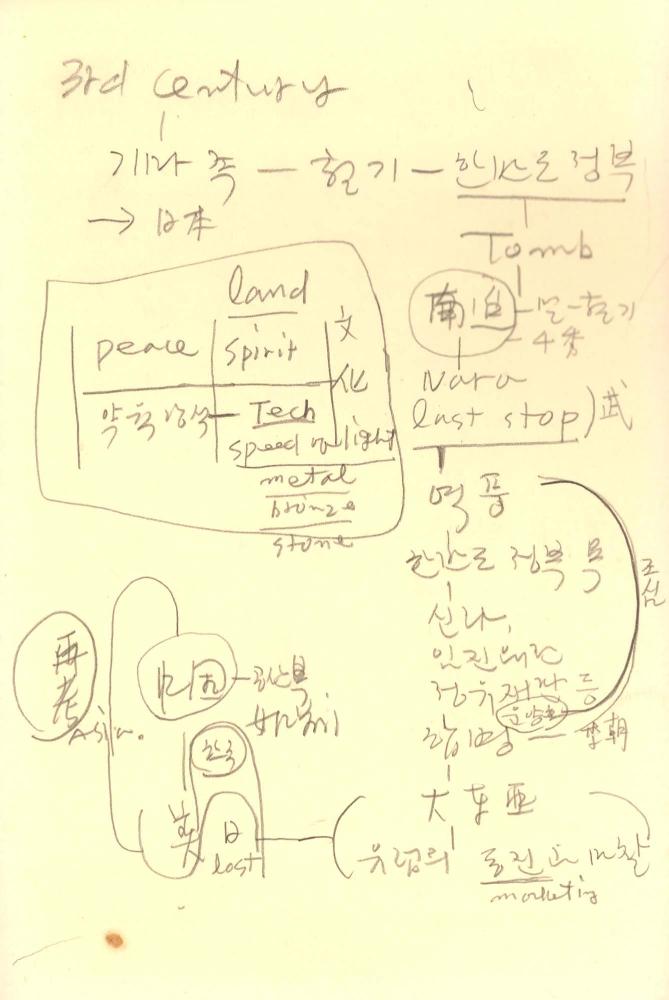 3rd century
기마족 - 철기 - 한반도 정복
→ 日本
Tomb
南
Nara
last stop) 武
land
peace
spirit
文
化
Tech
speed of light
metal
bronze
stone
한반도 정복
신라,
임진왜란
정유재란 등
합병 - 李朝
大東亞
유럽의 동진과 마찰
marketing
再考
Asia.
한국
美
日
lost